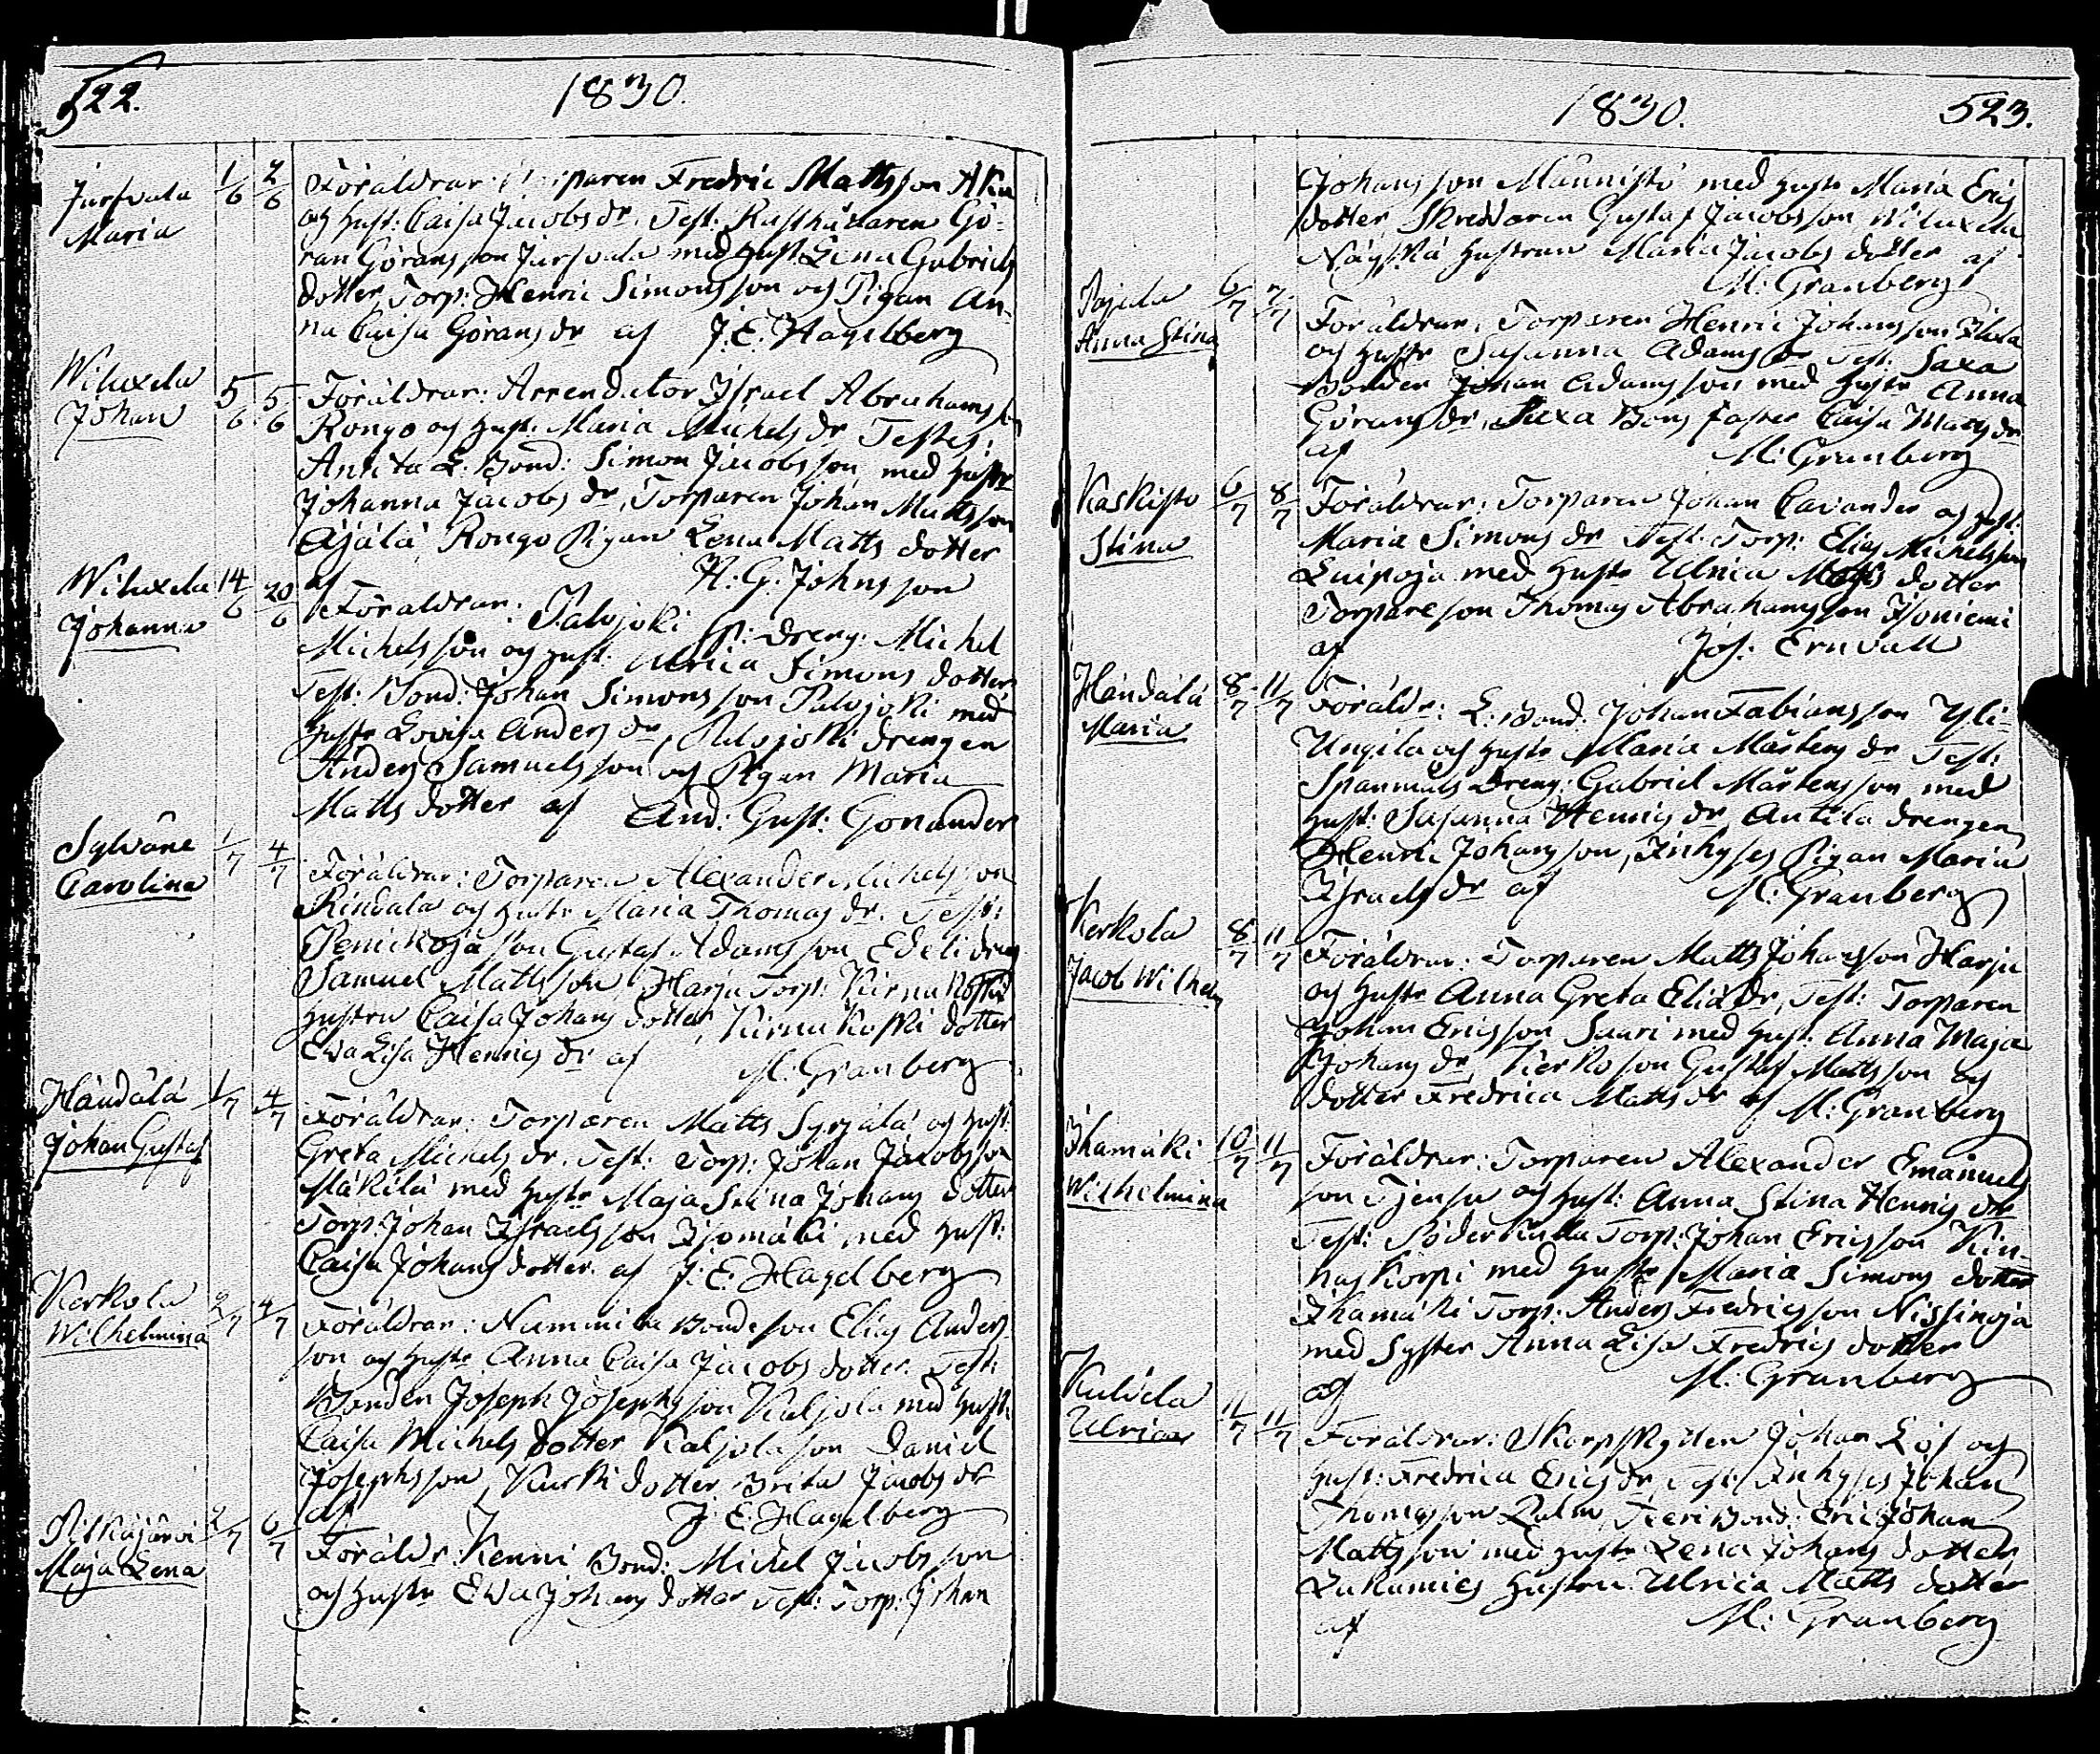 522.
1830.
Jursvala
Maria
1/6 2/6
Föräldrar: Torparen Fredric Mattsson Aku
og Hust: Caisa Jacobs dr. Test: Rusthållaren Gö-
ran Göransson Jursvala med Hust. Lena Gabriels
dotter, Torp: Henric Simonsson og Pigan An-
na Caisa Görans dr af J. E. Hagelberg
Wiluxela
Johan
5/6 5/6
Föräldrar: Arrendator Israel Abrahamsson
Rongo og Hust. Maria Michels dr Testes:
Antila L. Bond: Simon Jacobsson med Hustr
Johanna Jacobs dr, Torparen Johan Mattsson
Äjälä Rongo Pigan Lena Matts dotter
af H. G. Johnsson
Wiluxela
Johanna
14/6 20/6
Föräldrar: Palojoki Sp: dreng: Michel
Michelsson og Hust: Ulrica Simons dotter
Test: Bond: Johan Simonsson Palojoki med
Hustr Lovisa Anders dr, Palojoki drengen
Anders Samuelsson og Pigan Maria
Matts dotter af And: Gust: Gonander
Sylväne
Carolina
1/7 4/7
Föräldrar: Torparen Alexander Michelsson
Rindala og Hustr Maria Thomas dr. Test:
Penickoja son Gustaf Adamsson Edeli dreng
Samuel Mattsson, Harju Torp: Kirnukoski
Hustru Caisa Johans dotter, Kirnukoski dotter
Ewa Lisa Henrics dr af M: Granberg
Händälä
Johan Gustaf
1/7 4/7
Föräldrar: Torparen Matts Syrjälä og Hust:
Greta Michels dr. Test: Torp: Johan Jacobsson
Mäkilä med Hustr Maja Stina Johans dotter
Torp: Johan Israelsson Isomäki med Hust:
Caisa Johans dotter af J. E. Hagelberg
Kerkola
Wilhelmina
2/7 4/7
Föräldrar: Nummila Bondeson Elias Anders
son og Hustr Anna Caisa Jacobs dotter. Test:
Bonden Joseph Josephsson Kaljola med Hustr
Caisa Michels dotter Kaljola son Daniel
Josephsson, Kurki dotter Brita Jacobs dr
af J. E. Hagelberg
Pitkäjärvi
Maja Lena
2/7 6/7
Föräldr: Kenni Bond: Michel Jacobsson
og Hustr Ewa Johans dotter Test: Torp: Johan
1830.
523.
Johansson Männistö med Hustr Maria Erics
dotter, Skreddaren Gustaf Jacobsson Wiluxela
Hustrun Maria Jacobs dotter af
M: Granberg
Pajula
Anna Stina
6/7 7/7
Föräldrar: Torparen Henric Johansson
og Hustr Susanna Adams dr Test: Saxa
Bonden Johan Adamsson med Hustr Anna
Görans dr, Saxa Bons Faster Caisa Matts dr
af M: Granberg
Kaskisto
Stina
6/7 8/7
Föräldrar: Torparen Johan Cavander og Hust:
Maria Simons dr Test: Torp: Elias Michelsson
Luipoja med Hustr Ulrica Matts dotter
Torpareson Thomas Abrahamsson Isoniemi
af Jos: Ernvall
Händälä
Maria
8/7 11/7
Föräldr: L: Bond: Johan Fabiansson Yli-
Ungila og Hustr Maria Mårtens dr Test:
Spannials Dreng: Gabriel Mårtensson med
Hust: Susanna Henrics dr Antila drengen
Henric Johansson, Inhyses Pigan Maria
Israels dr af M: Granberg
Kerkola
Jacob Wilhelm
8/7 11/7
Föräldrar: Torparen Matts Johansson Harju
og Hustr Anna Greta Eliæ dr, Test: Torparen
Johan Ericsson Saari med Hust: Anna Maja
Johans dr, Kerko son Gustaf Mattsson og
dotter Fredrica Matts dr af M: Granberg
Ihamäki
Wilhelmina
10/7 11/7
Föräldrar: Torparen Alexander Emanuels
son Tjensu og Hust: Anna Stina Henrics dr
Test: Söderkulla Torp: Johan Ericsson Kin-
haskorpi med Hustr Maria Simons dotter
Ihamäki Torp: Anders Fredricsson Nissinoja
med Syster Anna Lisa Fredrics dotter
af M: Granberg
Kulvela
Ulrica
11/7 11/7
Föräldrar: Skarpskytten Johan Löf og
Hust: Fredrica Erics dr, Test: Inhyses Johan
Thomasson Palm, Bond: Eric Johan
Mattsson med Hustr Lena Johans dotter
Hustru Ulrica Matts dotter
af M: Granberg